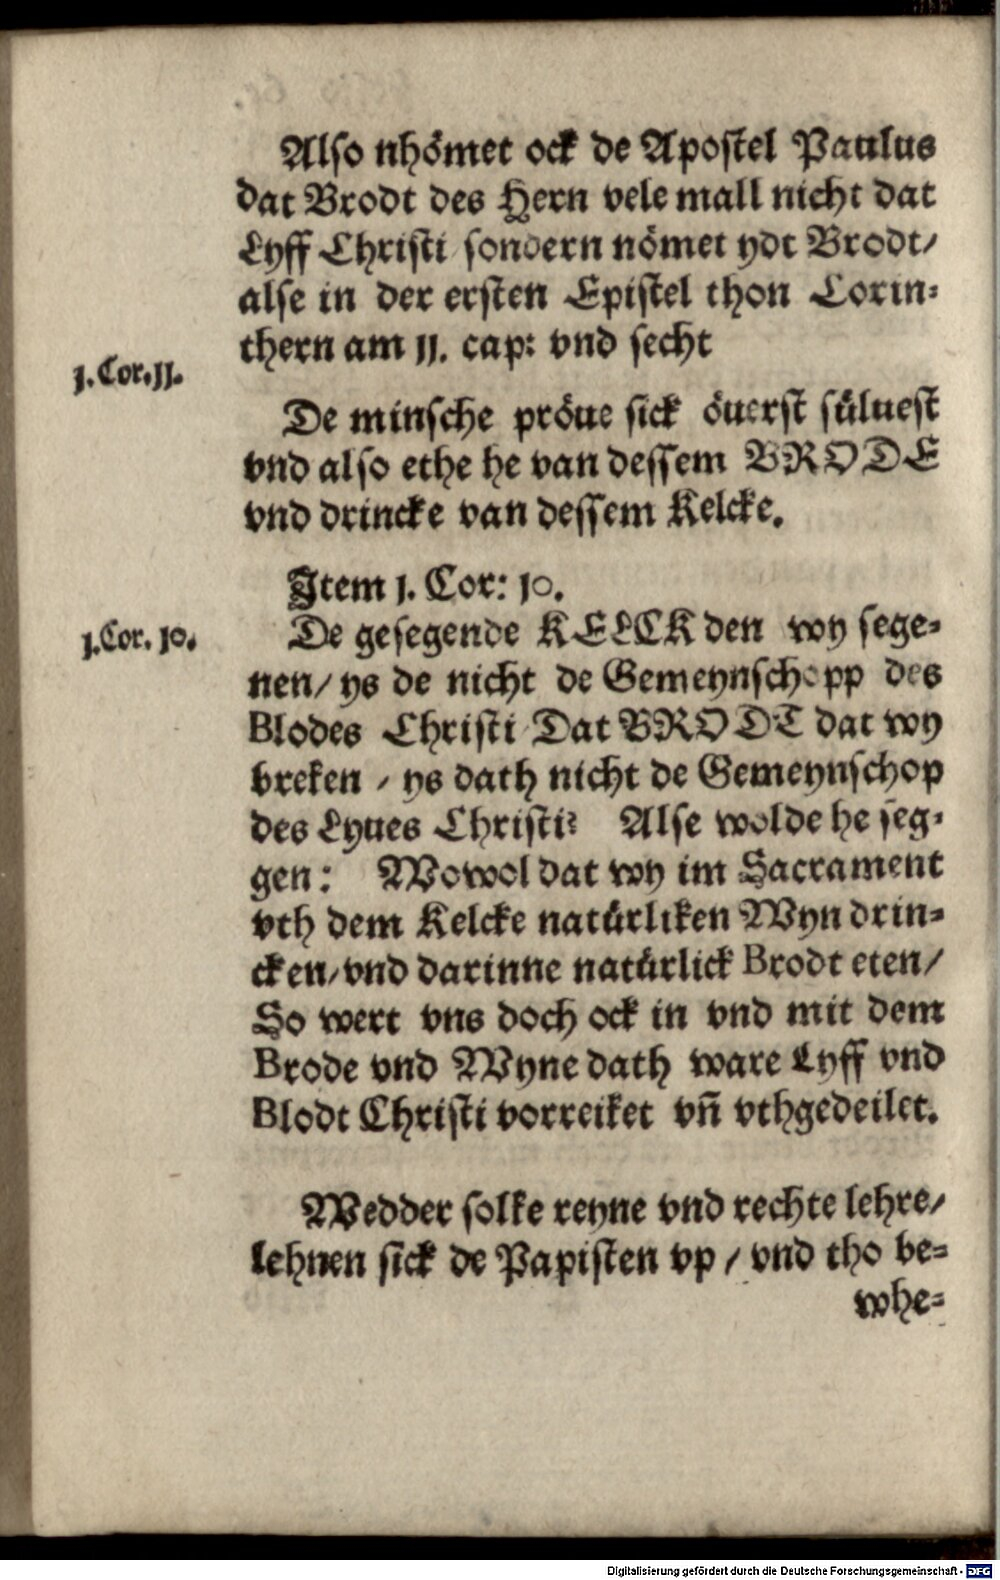 Also nhömet ock de Apostel Paulus
dat Brodt des Hern vele mall nicht dat
Lyff Christi sondern nömet ydt Brodt/
alse in der ersten Epistel thon Corin-
thern am 11. cap: vnd secht
1. Cor. 11.
De minsche pröue sick öuerst süluest
vnd also ethe he van dessem BRODE
vnd drincke van dessem Kelcke.
Item 1. Cor: 10.
1. Cor. 10.
De gesegende KELCK den wy sege-
nen/ ys de nicht de Gemeynschopp des
Blodes Christi Dat BRODT dat wy
breken / ys dath nicht de Gemeynschop
des Lyues Christi? Alse wolde he seg-
gen: Wowol dat wy im Sacrament
vth dem Kelcke natürliken Wyn drin-
cken/ vnd darinne natürlick Brodt eten/
So wert vns doch ock in vnd mit dem
Brode vnd Wyne dath ware Lyff vnd
Blodt Christi vorreiket vñ vthgedeilet.
Wedder solke reyne vnd rechte lehre/
lehnen sick de Papisten vp / vnd tho be-
whe-
Digitalisierung gefördert durch die Deutsche Forschungsgemeinschaft - DFG